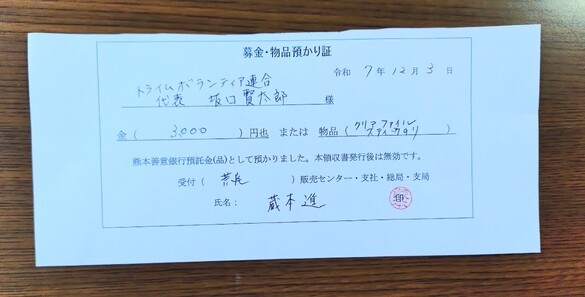 募金・物品預かり証
令和 7年12月3日
トライムボランティア連合
代表 坂口賢太郎 様
金( 3,000 )円也 または 物品(クリアファイル
熊本善意銀行預託金(品)として預かりました。本領収書発行後は無効です。
受付( )販売センター・支社・総局・支局
氏名: 蔵本進